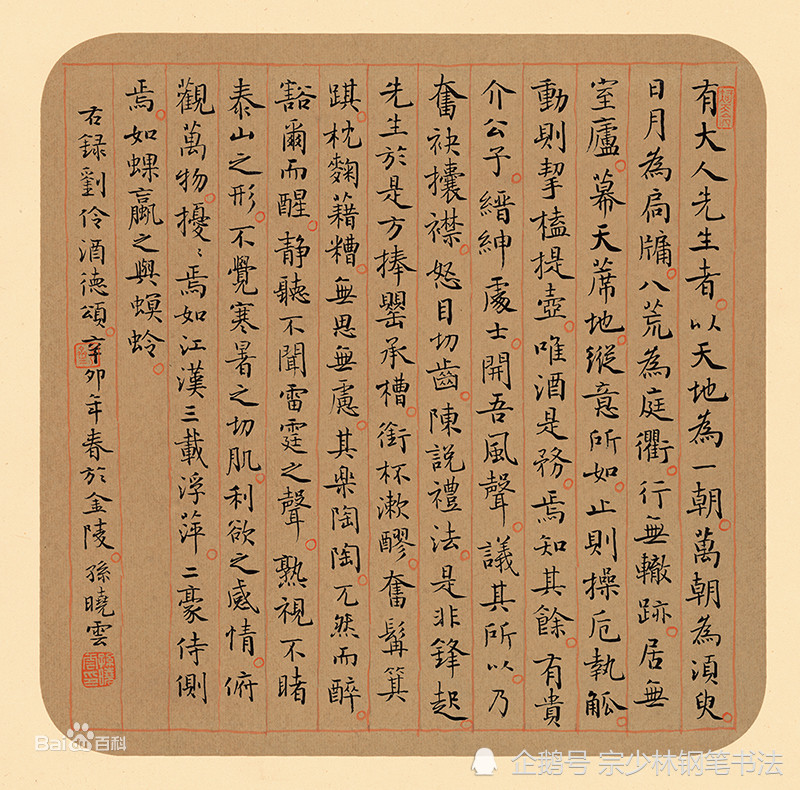 有大人先生者以天地為一朝萬朝為須臾
日月為扃牖八荒為庭衢行無轍跡居無
室廬幕天蓆地縱意所如止則操卮執觚
動則挈榼提壺唯酒是務焉知其餘有貴
介公子縉紳處士聞吾風聲議其所以乃
奮袂攘襟怒目切齒陳說禮法是非鋒起
先生於是方捧罌承槽銜杯漱醪奮髯箕
踑枕麴藉糟無思無慮其樂陶陶兀然而醉
豁爾而醒静聽不聞雷霆之聲熟視不睹
泰山之形不覺寒暑之切肌利欲之感情俯
觀萬物擾〻焉如江漢三載浮萍二豪侍側
焉如蜾蠃之與螟蛉
右録劉伶酒德頌辛卯年春於金陵孫曉雲
Baidu百科
企鹅号 宗少林钢笔书法